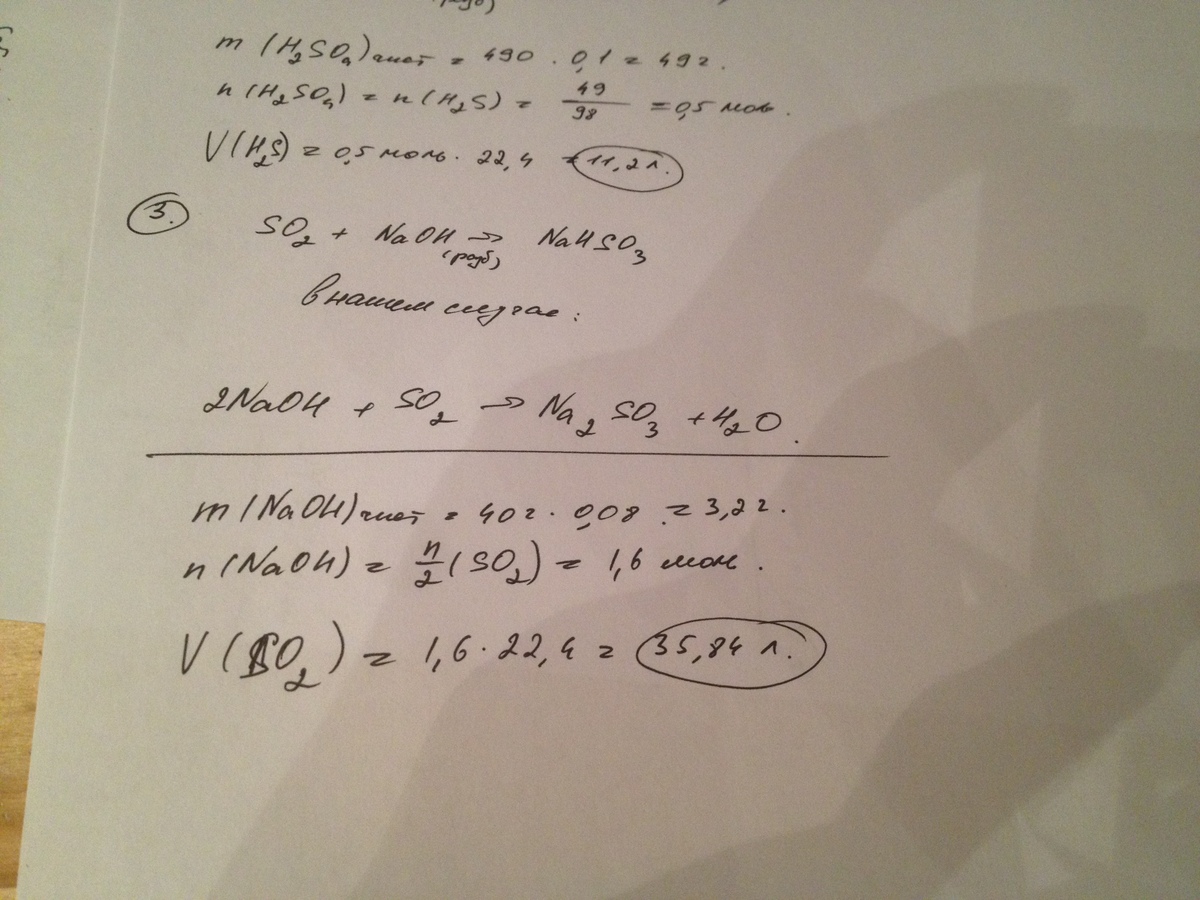 m (H₂SO₄)чист = 490 · 0,1 = 49 г.
n (H₂SO₄) = n (H₂S) = 49/98 = 0,5 моль.
V (H₂S) = 0,5 моль · 22,4 = 11,2 л.
3.
SO₂ + NaOH -> NaHSO₃
(разб)
в нашем случае:
2NaOH + SO₂ -> Na₂SO₃ + H₂O.
m (NaOH)чист = 40 г · 0,08 = 3,2 г.
n (NaOH) = n/2 (SO₂) = 1,6 мол.
V (SO₂) = 1,6 · 22,4 = 35,84 л.